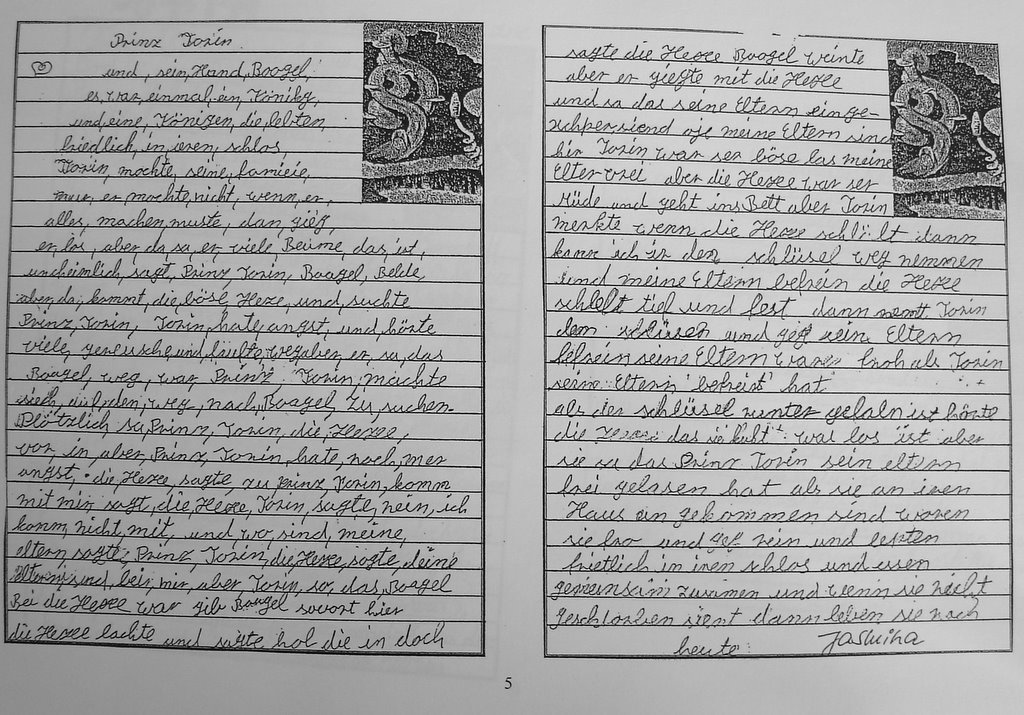 Prinz Torin
und, sein, Hand, Boogel,
es, war, einmal, ein, Könikg,
und, eine, Königen, die, lebten,
friedlich, in, ieren, schlos,
Torin, mochte, seine, famieie,
er, mochte, nicht, wenn, er,
alles, machen, muste, dan, gieg,
er, los, aber, da, sa, er, viele Beume, das, ist,
uncheimlich, sagt, Prinz Torin, Boogel, Belde
aber, da, kommt, die, böse, Hexe, und, suchte
Prinz, Torin, Torin, hate, angst, und, hörte
viele, gereusche, und, laufte, weg, aber, er, sa, das
Boogel, weg, war, Prinz Torin, machte
sich, auf, den, weg, nach, Boogel, zu, suchen.
Plötzlich, sa, Prinz, Torin, die, Hexe,
vor, in, aber, Prinz, Torin, hate, noch, mer
angst, die, Hexe, sagte, zu, Prinz, Torin, komm
mit mir, sagt, die, Hexe, Torin, sagte, nein, ich
komm, nicht, mit, und, wo, sind, meine,
eltern, sagte, Prinz, Torin, die, Hexe, sagte, deine
Eltern, sind, bei, mir, aber, Torin, so, das, Boogel
Bei die Hexe war gib Boogel sovort hier
die Hexe lachte und sagte hol die in doch
sagte die Hexe Boogel weinte
aber er giegte mit die Hexe
und sa das seine Eltern einge-
schpersiend oje meine Eltern sind
hir Torin war ser böse las meine
Elter vrei aber die Hexe war ser
Müde und geht ins Bett aber Torin
merkte wenn die Hexe schläft dann
kann ich ir den schlüsel weg nemmen
und meine Eltern befrein die Hexe
schleft tief und fest dann nemt Torin
dem schlüsen und gieg sein Eltern
befrein seine Eltern waren froh als Torin
seine Eltern befreit hat
als der schlüsel runter gefaln ist hörte
die Hexe das was los ist aber
sie sa das Prinz Torin sein eltern
frei gelasen hat als sie an iren
Haus an gekommen sind waren
sie fro und rein und lebten
frietlich in iren schlos und essen
gemeinsam zusamen und wenn sie nicht
geschtorben sient dann leben sie noch
heute Jasmina
5